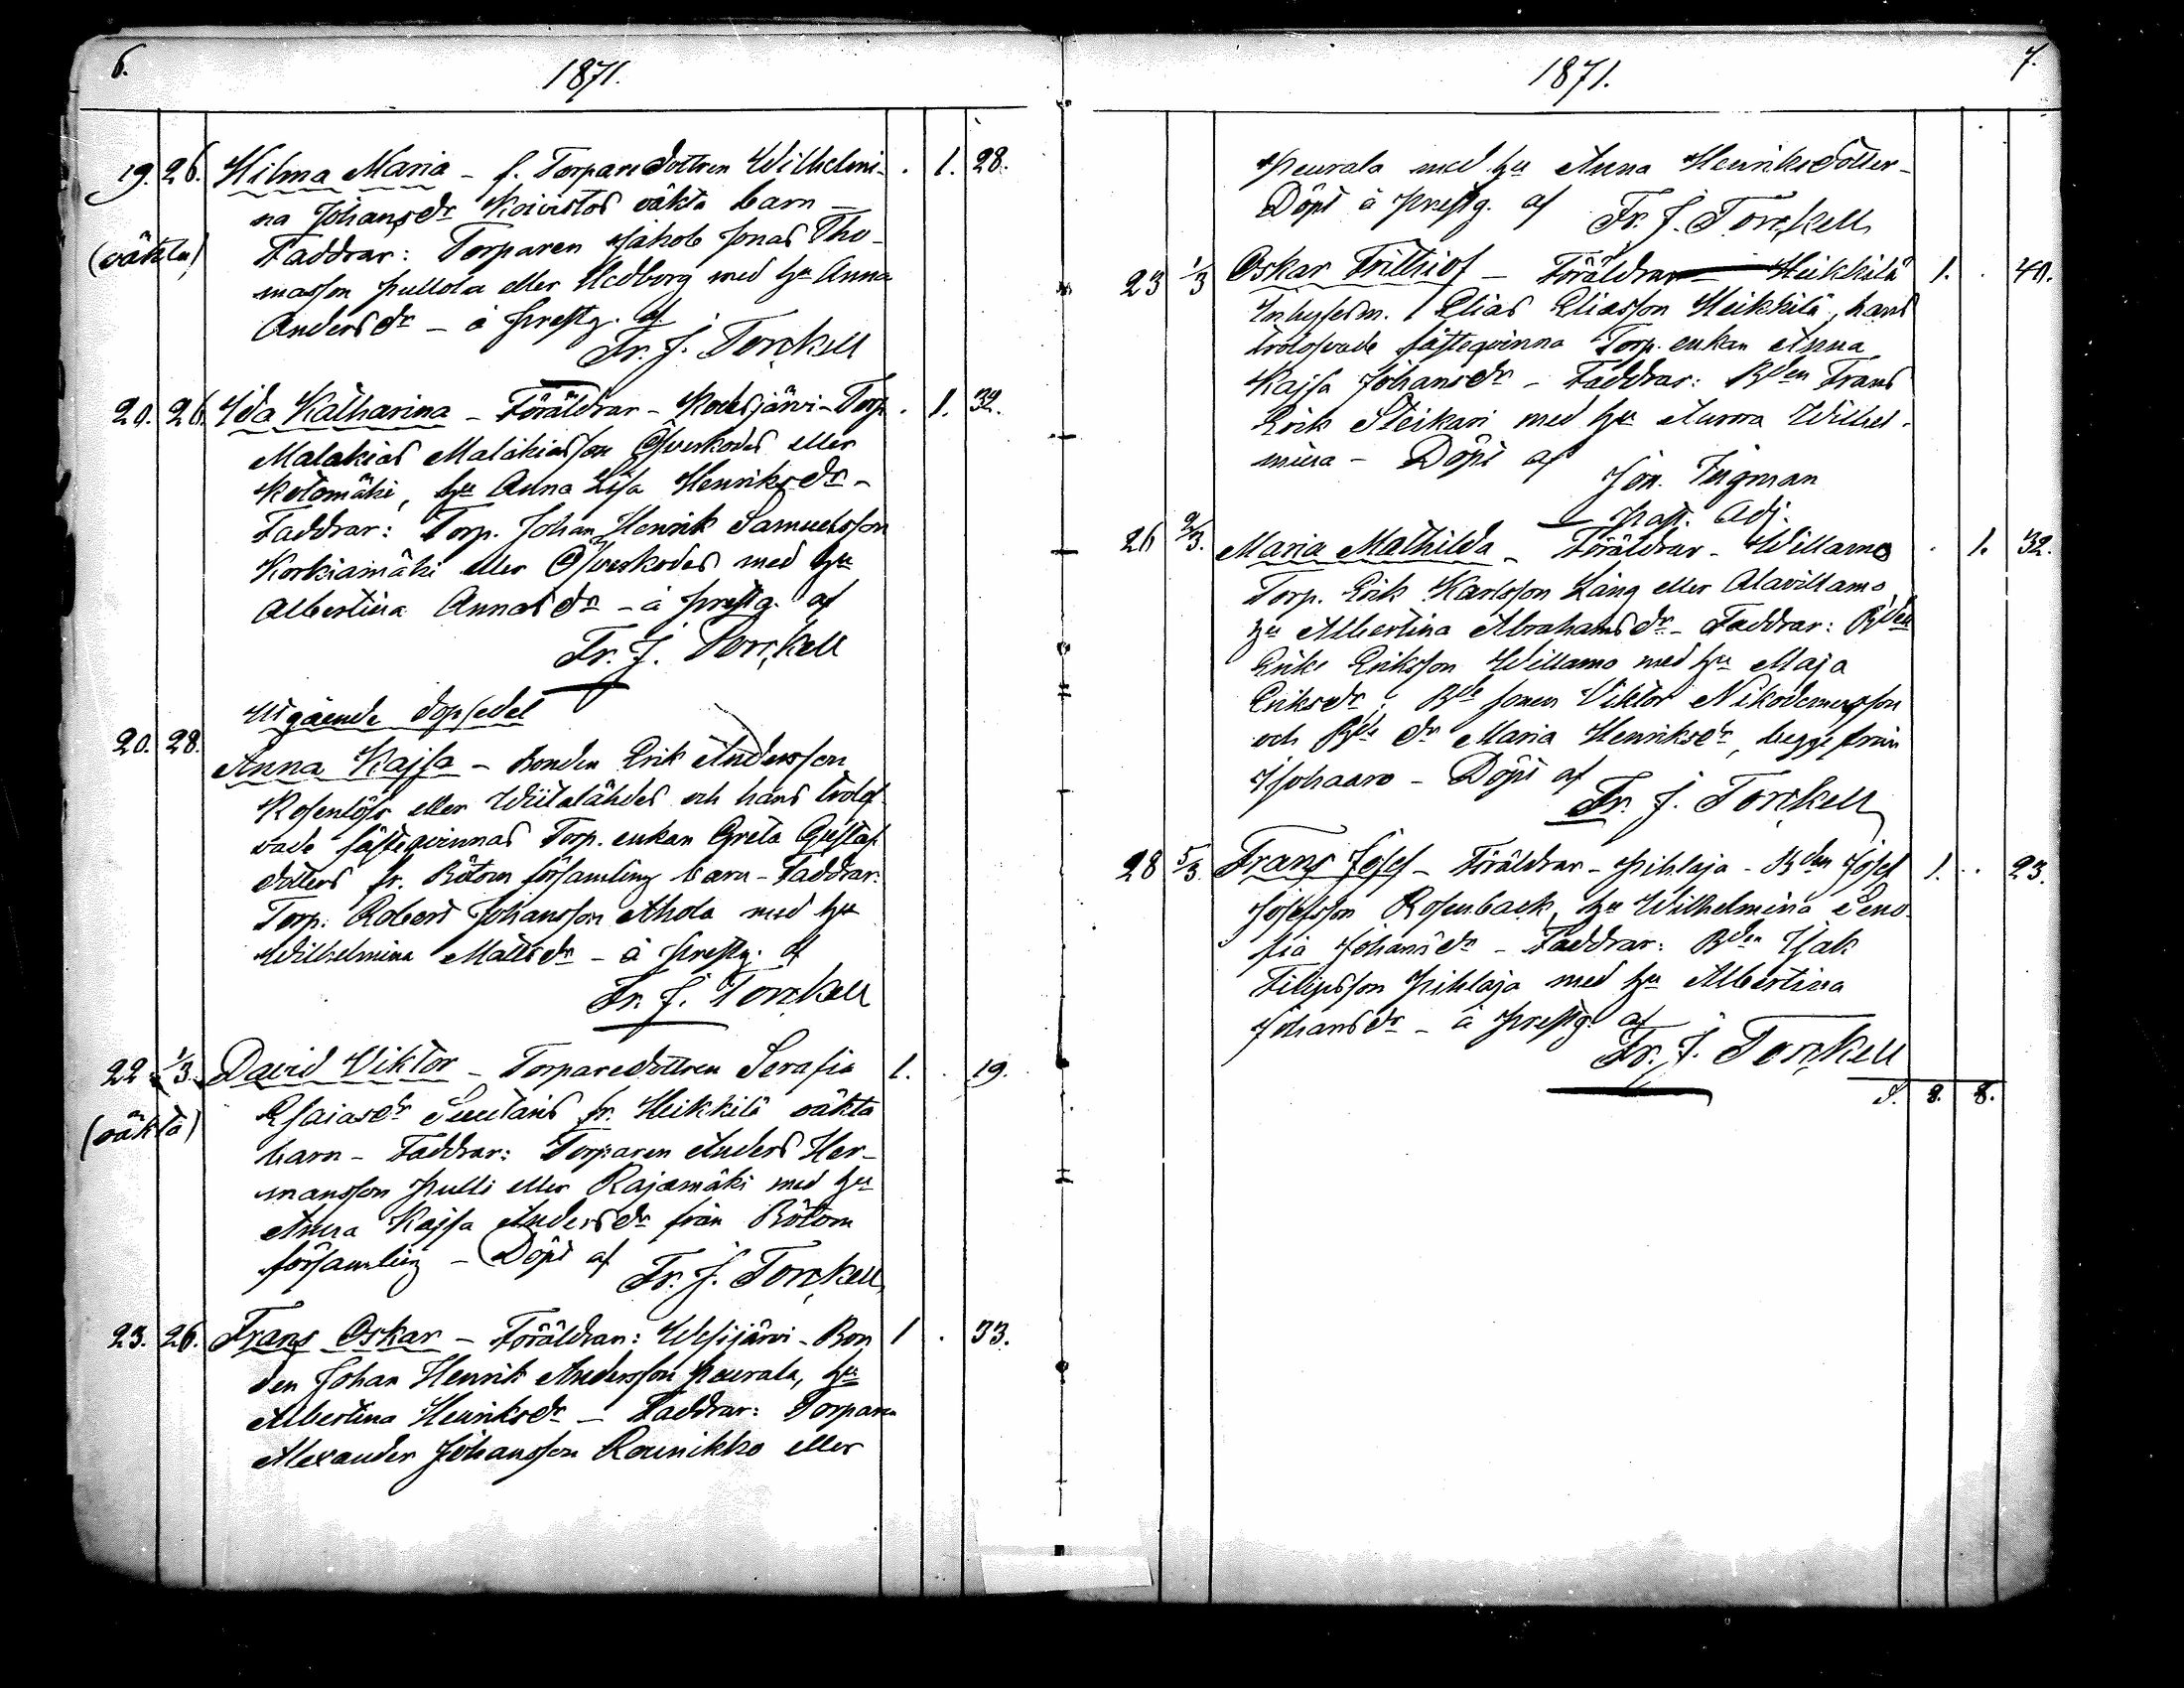 6.
1871.
19. 26. Hilma Maria – f. Torparedottren Wilhelmi- . 1. 28.
na Johansdr Koivistos oäkta barn –
(oäkta) Faddrar: Torparen Jakob Jonas Tho-
masson Pullola eller Hedborg med hu Anna
Andersdr – å prestg. af
Fr. J. Torckell
20. 26. Ida Katharina – Föräldrar – Kodesjärvi – Torp. . 1. 32.
Malakias Malakiasson Öfverkodes eller
Ketomäki, hu Anna Lisa Henriksdr –
Faddrar: Torp. Johan Henrik Samuelsson
Korkiamäki eller Öfverkodes med hu
Albertina Annasdr – å prestg. af
Fr. J. Torckell
Utgående dopsedel
20. 28. Anna Kajsa – Bonden Erik Andersson
Rosenlöf eller Wiitalähdes och hans trolof-
vade fästeqvinnas Torp. enkan Greta Gustaf-
dotters fr. Bötom församling barn – Faddrar:
Torp. Robert Johansson Ahola med hu
Wilhelmina Mattsdr – å prestg. af
Fr. J. Torckell
22 1/3. David Viktor – Torparedottren Serafia 1. . 19.
(oäkta) Esaiasdr Suutaris fr. Heikkilä oäkta
barn – Faddrar: Torparen Anders Her-
mansson Pulli eller Rajamäki med hu
Anna Kajsa Andersdr från Bötom
församling – Döpt af
Fr. J. Torckell
23. 26. Frans Oskar – Föräldrar: Wesijärvi – Bon 1 . 33.
den Johan Henrik Andersson Peurala, hu
Albertina Henriksdr – Faddrar: Torparen
Alexander Johansson Rounikko eller
7.
1871.
Peurala med hu Anna Henriksdotter –
Döpt å prestg. af Fr. J. Torckell
23 1/3 Oskar Frithiof – Föräldrar – Heikkilä 1. . 40.
Inhysesm. Elias Eliasson Heikkilä, hans
trolofvade fästeqvinna Torp. enkan Anna
Kajsa Johansdr – Faddrar: Bden Frans
Erik Steikari med hu Aurora Wilhel-
mina – Döpt af
Jon. Ingman
past. Adj.
26 2/3. Maria Mathilda – Föräldrar – Willamo . 1. 32.
Torp. Erik Karlsson Lång eller Alavillamo,
hu Albertina Abrahamsdr – Faddrar: Bden
Erik Eriksson Willamo med hu Maja
Eriksdr; Bde sonen Viktor Nikodemusson
och Bde dr Maria Henriksdr, begge från
Isohaaro – Döpt af
Fr. J. Torckell
28 5/3. Frans Josef – Föräldrar – Pihlaja – Bden Josef 1. . 23.
Josefsson Rosenback, hu Wilhelmina Seno-
fia Johansdr – Faddrar: Bden Isak
Filipsson Pihlaja med hu Albertina
Johansdr – å prestg. af
Fr. J. Torckell
S. 8. 8.